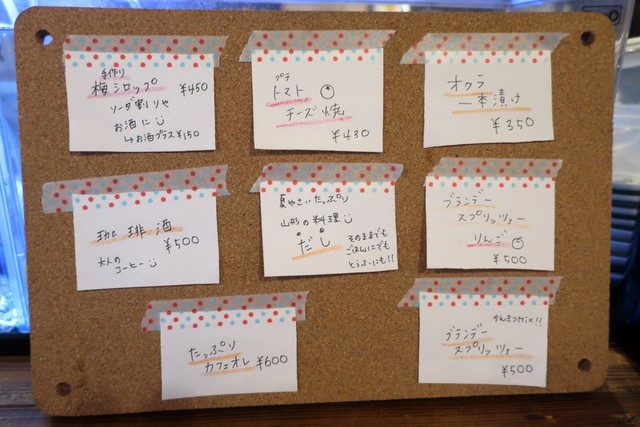 手作り
梅シロップ ¥450
ソーダ割りや
お酒に
↳お酒プラス¥150
プチ
トマト
チーズ焼
¥430
オクラ
一本漬け
¥350
珈琲酒
¥500
大人の
コーヒー
夏やさいたっぷり
山形の料理
だし
そのままでも
ごはんにでも
とうふにも!!
ブランデー
スプリッツァー
りんご
¥500
たっぷり
カフェオレ ¥600
かんきつMix!!
ブランデー
スプリッツァー
¥500